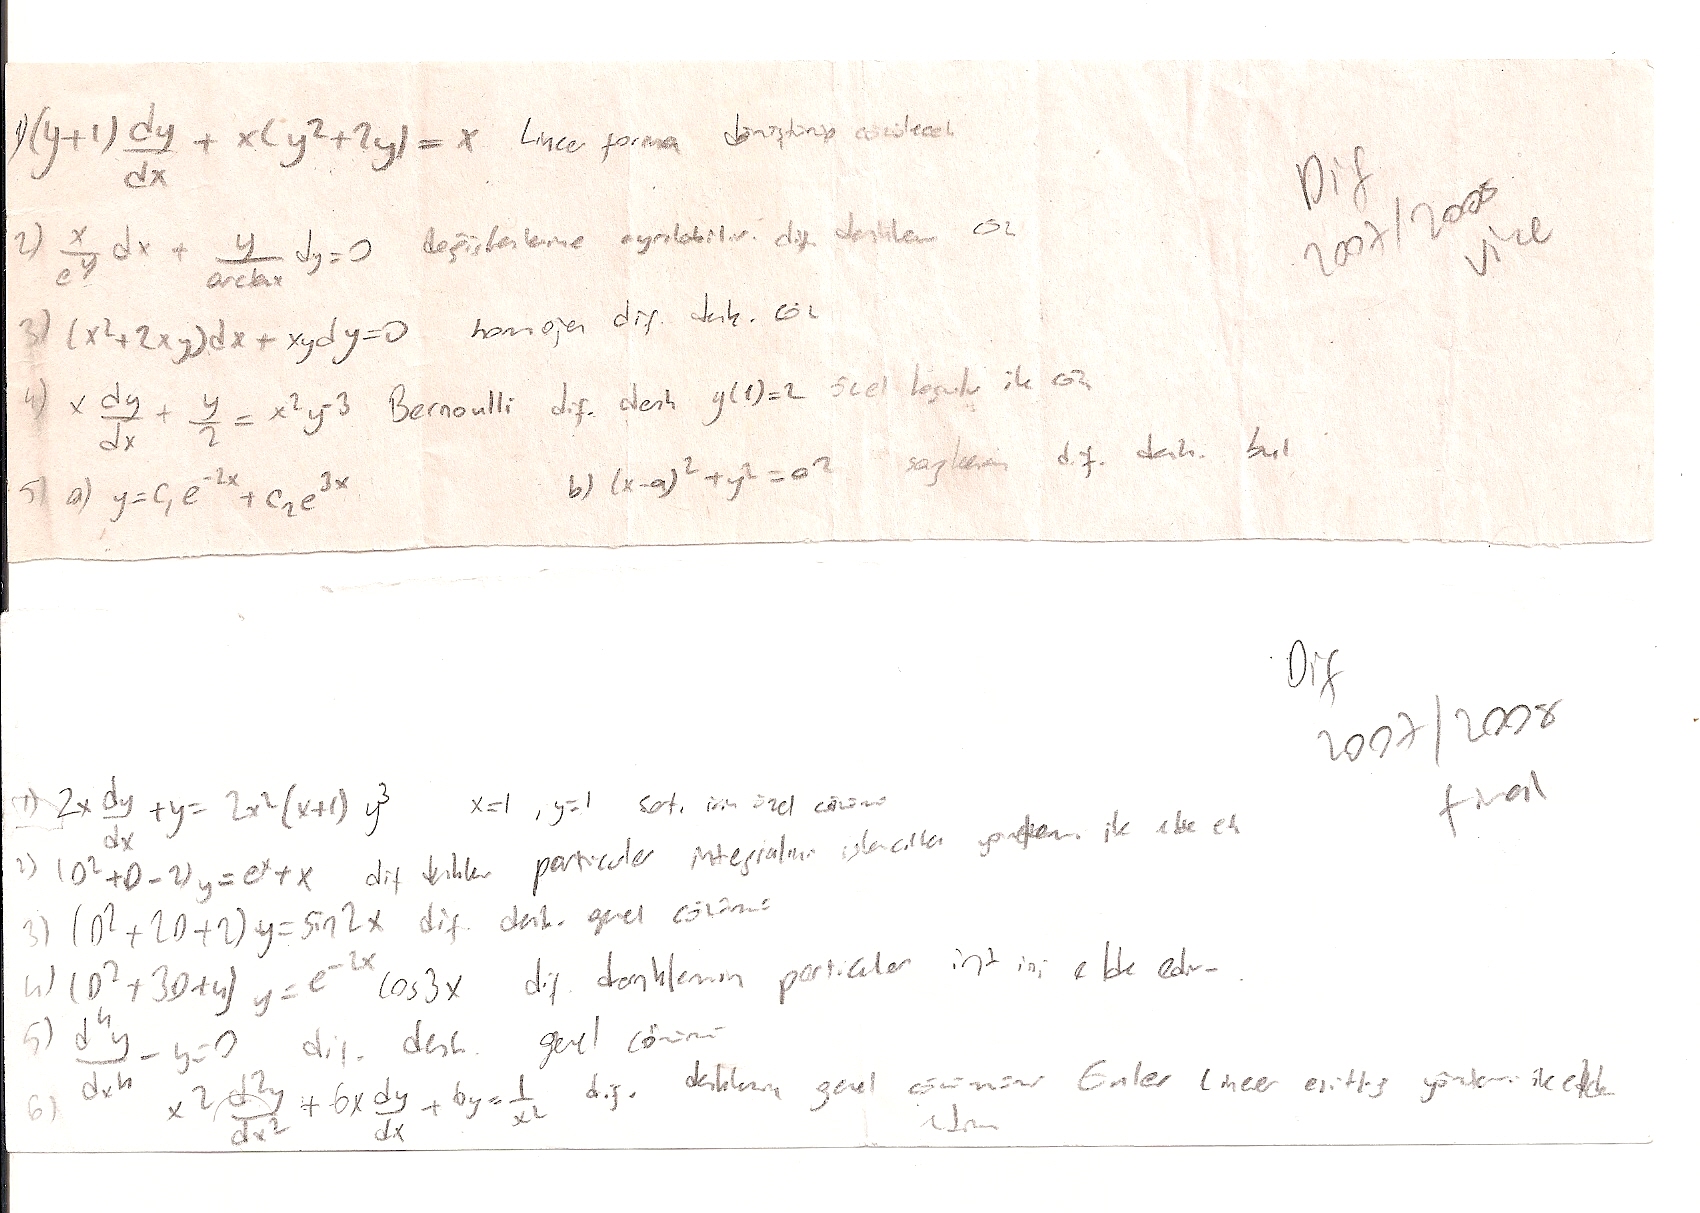 1) (y+1) dy/dx + x(y²+2y) = x Lineer forma dönüştürüp çözülecek
Dif
2007/2008
vize
2) x/e^y dx + y/arctanx dy=0 değişkenlerine ayrılabilir dif. denklem çöz
3) (x²+2xy)dx + xydy=0 homojen dif. denk. çöz
4) x dy/dx + y/2 = x²y^-3 Bernoulli dif. denk y(1)=2 özel koşulu ile çöz
5) a) y=C₁e^-2x + C₂e^3x b) (x-a)²+y²=a² sağlayan dif. denk. bul
Dif
2007/2008
final
1) 2x dy/dx +y= 2x²(x+1) y³ x=1, y=1 şart. için özel çözümü
2) (D²+D-2)y=e^x+x dif denklem particuler integralini yöntemi ile elde et
3) (D²+2D+2)y=sin2x dif. denk. genel çözümü
4) (D²+3D+4)y=e^-2x cos3x dif. denklemin particuler int ini elde edin
5) d⁴y/dx⁴ - y=0 dif. denk. genel çözümü
6) x² d²y/dx² + 6x dy/dx + 6y = 1/x² dif. denklemin genel çözümünü Euler Lineer yöntemi ile elde